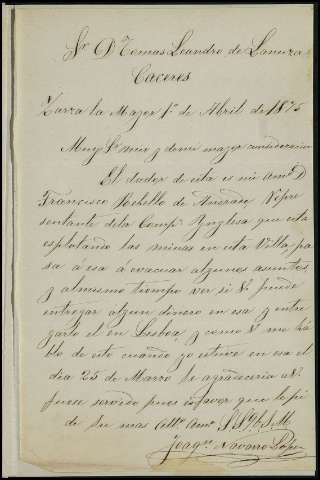 Sr. Dn Tomas Leandro de Lanuza
Caceres
Zarza la Mayor 1º de Abril de 1875
Muy Sr. mio y de mi mayor consideracion
El dador de esta es mi amo. D
Francisco de Andrade Repre
sentante dela Compª Ynglesa que está
esplotando las minas en esta Villa, pa
sa á esa á evacuar algunos asuntos
y almismo tiempo ver si V. puede
entregar algun dinero en esa y entre
garlo el en Lisboa, y como V. me ha
bló de esto cuando yo estuve en esa el
dia 25 de Marzo le agradeceria á V.
fuese servido pues es favor que le pi
de su mas atto. amo. S. S. Q. B. S. M.
Joaqn. Navarro